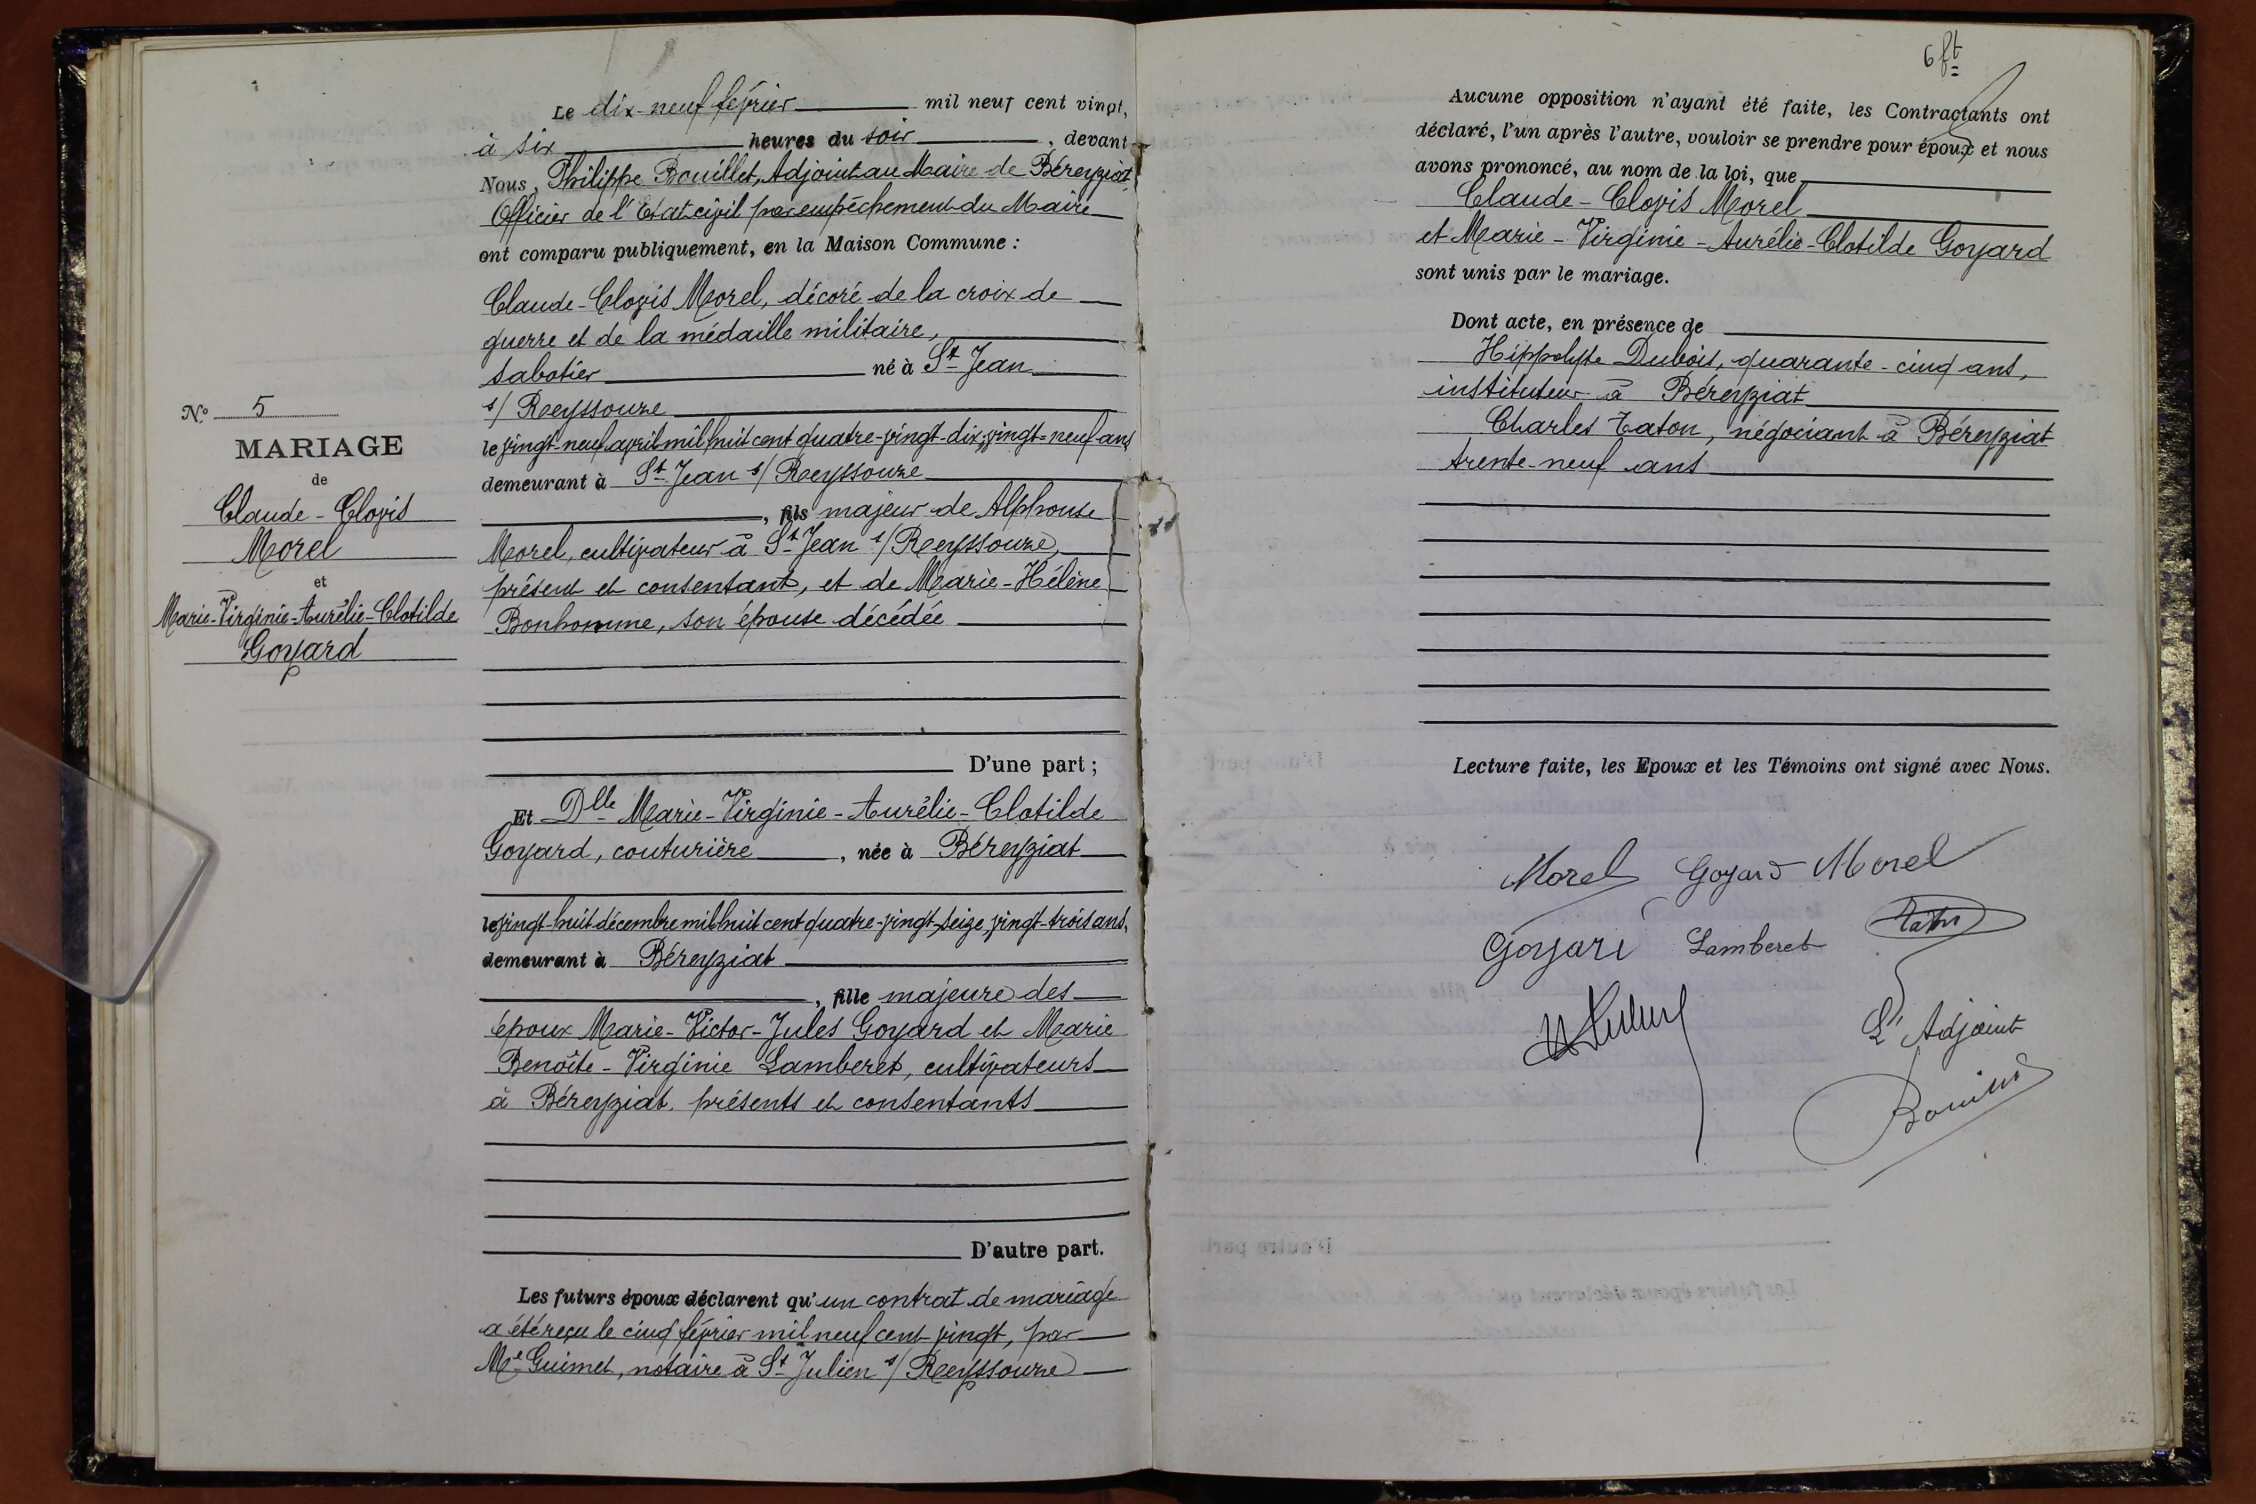 Le dix-neuf février mil neuf cent vingt,
à six heures du soir, devant
Nous, Philippe Bouillet, Adjoint au Maire de Béreyziat,
Officier de l'Etat civil par empêchement du Maire
ont comparu publiquement, en la Maison Commune :
Claude-Clovis Morel, décoré de la croix de
guerre et de la médaille militaire,
sabotier né à St Jean
s/ Reyssouze
le vingt-neuf avril mil huit cent quatre-vingt-dix, vingt-neuf ans
demeurant à St Jean s/ Reyssouze
, fils majeur de Alphonse
Morel, cultivateur à St Jean s/ Reyssouze,
présent et consentant, et de Marie-Hélène
Bonhomme, son épouse décédée
D'une part ;
N° 5
MARIAGE
de
Claude-Clovis
Morel
et
Marie-Virginie-Aurélie-Clotilde
Goyard
Et Dlle Marie-Virginie-Aurélie-Clotilde
Goyard, couturière, née à Béreyziat
le vingt-huit décembre mil huit cent quatre-vingt-seize, vingt-trois ans,
demeurant à Béreyziat
, fille majeure des
époux Marie-Victor-Jules Goyard et Marie
Benoîte-Virginie Lamberet, cultivateurs
à Béreyziat, présents et consentants
D'autre part.
Les futurs époux déclarent qu'un contrat de mariage
a été reçu le cinq février mil neuf cent vingt, par
Me Guimet, notaire à St Julien s/ Reyssouze
6 ft
Aucune opposition n'ayant été faite, les Contractants ont
déclaré, l'un après l'autre, vouloir se prendre pour époux et nous
avons prononcé, au nom de la loi, que
Claude-Clovis Morel
et Marie-Virginie-Aurélie-Clotilde Goyard
sont unis par le mariage.
Dont acte, en présence de
Hippolyte Dubois, quarante-cinq ans,
instituteur à Béreyziat
Charles Taton, négociant à Béreyziat
trente-neuf ans
Lecture faite, les Epoux et les Témoins ont signé avec Nous.
Morel Goyard Morel
Goyard Lamberet Taton
L'Adjoint
Bouillet